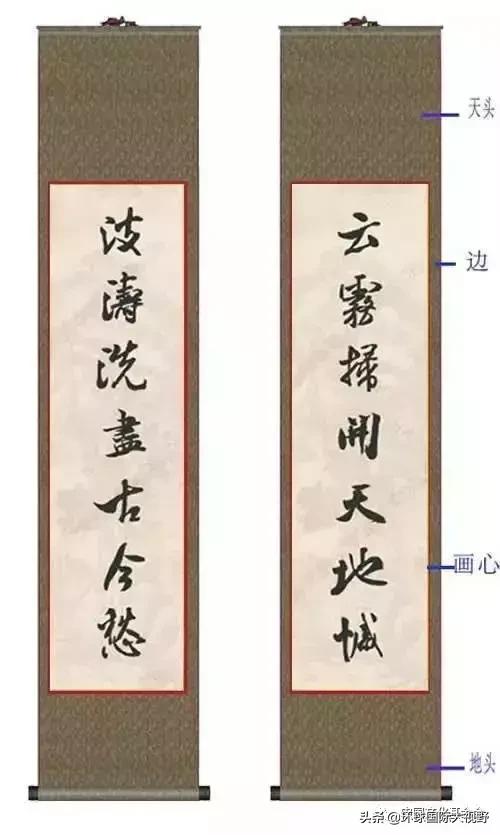 云霧掃開天地憾
波濤洗盡古今愁
天头
边
画心
地头
头条 @环球国际大视野